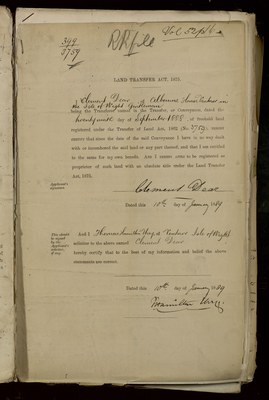 399
2759
RR file
LAND TRANSFER ACT, 1875.
I Clement Dear of Albourne
the Isle of Wight Gentleman
being the Transferee named in the Transfer or Conveyance dated the
day of September 1888, of freehold land
registered under the Transfer of Land Act, 1862 (No. 2759), hereby
certify that since the date of the said Conveyance I have in no way dealt
with or encumbered the said land or any part thereof, and that I am entitled
to the same for my own benefit. And I assent to be registered as
proprietor of such land with absolute title under the Land Transfer
Act, 1875.
Applicant's
signature.
Clement Dear
Dated this 10th day of January 1889
This should
be signed
by the
Applicant's
solicitor,
if any.
And I Thomas Hamilton Urry of Ventnor Isle of Wight
solicitor to the above named Clement Dear
hereby certify that to the best of my information and belief the above
statements are correct.
Dated this 10th day of January 1889
Hamilton Urry